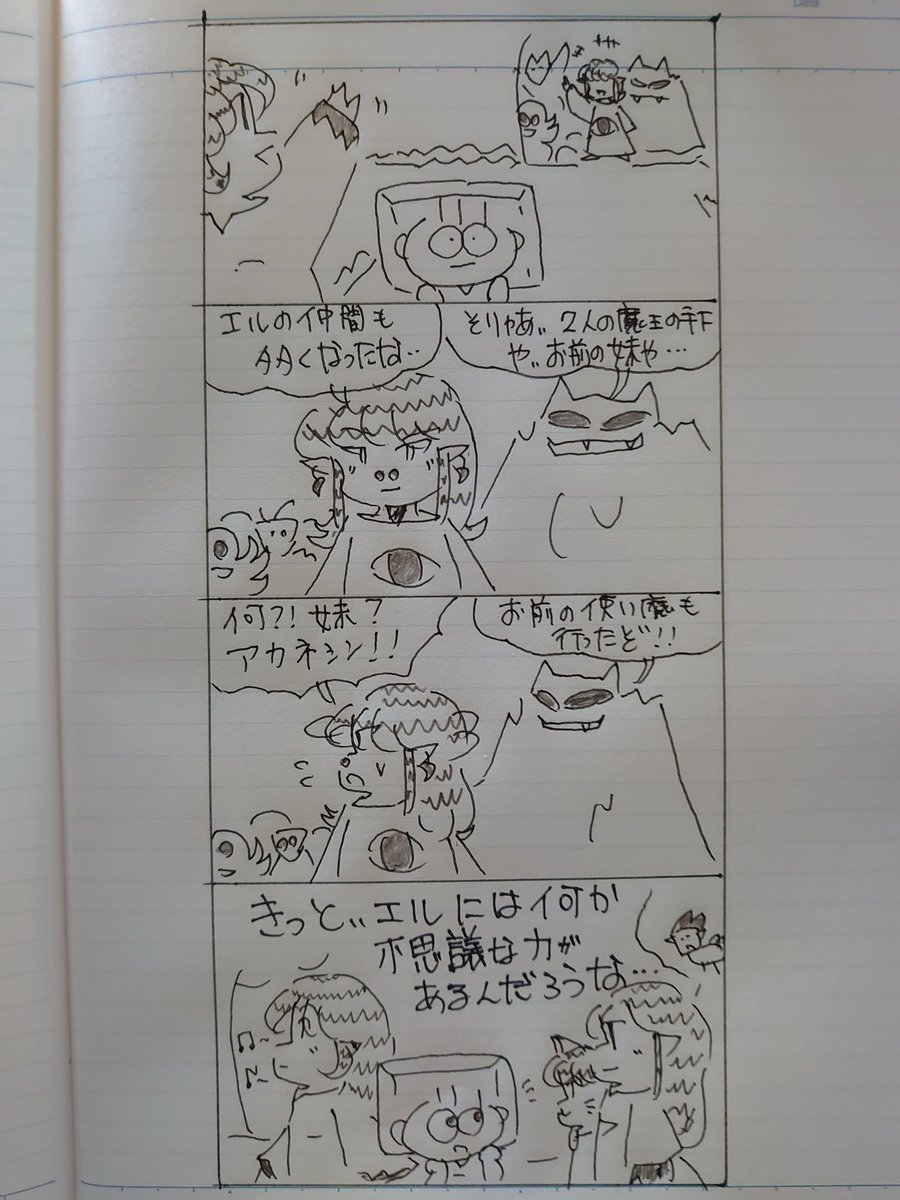 エルの仲間も
多くなったな‥
そりゃあ‥2人の魔王の手下
や‥お前の妹や…
何?!妹?
アカネシン!!
お前の使い魔も
行ったど!!
きっと‥エルには何か
不思議な力が
あるんだろうな…